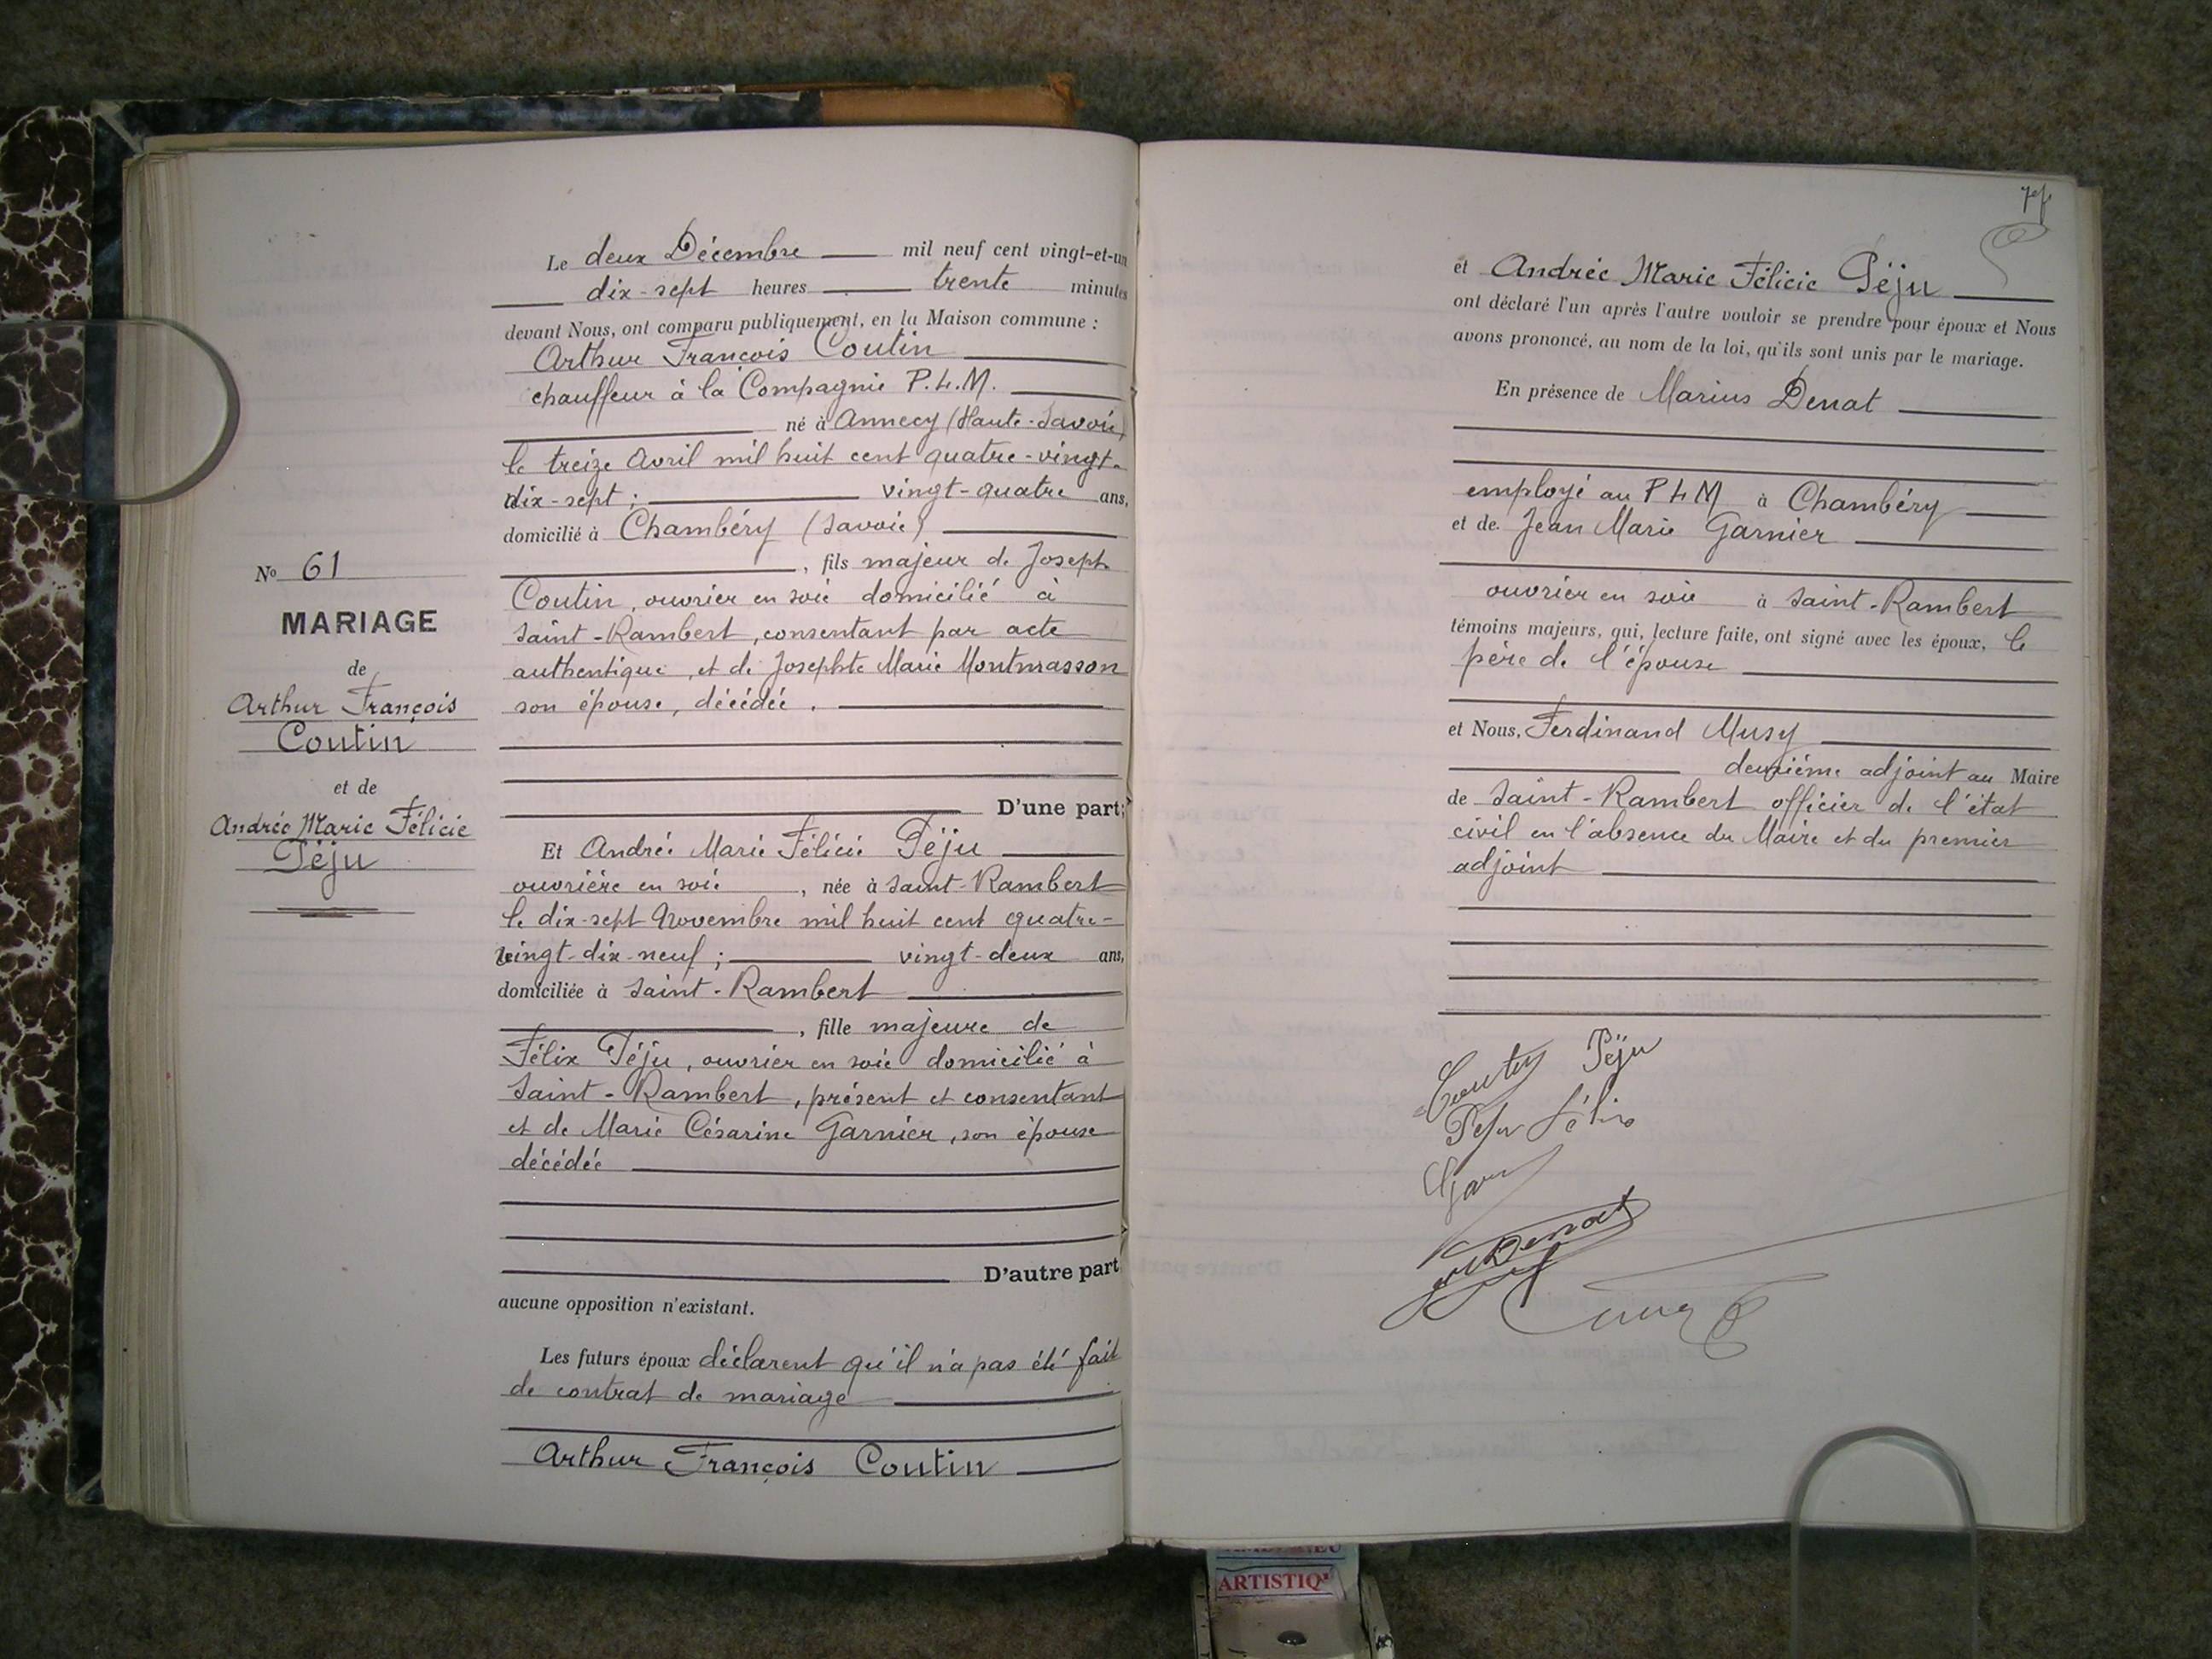 Nº 61
MARIAGE
de
Arthur François
Coutin
et de
Andrée Marie Félicie
Péju
Le deux Décembre mil neuf cent vingt-et-un
dix-sept heures trente minutes
devant Nous, ont comparu publiquement, en la Maison commune :
Arthur François Coutin
chauffeur à la Compagnie P.L.M.
né à Annecy (Haute-Savoie)
le treize Avril mil huit cent quatre-vingt-
dix-sept ; vingt-quatre ans,
domicilié à Chambéry (Savoie)
, fils majeur de Joseph
Coutin, ouvrier en soie domicilié à
Saint-Rambert, consentant par acte
authentique, et de Josephte Marie Montmasson
son épouse, décédée.
D'une part;
Et Andrée Marie Félicie Péju
ouvrière en soie, née à Saint-Rambert
le dix-sept Novembre mil huit cent quatre-
vingt-dix-neuf ; vingt-deux ans,
domiciliée à Saint-Rambert
, fille majeure de
Félix Péju, ouvrier en soie domicilié à
Saint-Rambert, présent et consentant
et de Marie Césarine Garnier, son épouse
décédée
D'autre part
aucune opposition n'existant.
Les futurs époux déclarent qu'il n'a pas été fait
de contrat de mariage
Arthur François Coutin
et Andrée Marie Félicie Péju
ont déclaré l'un après l'autre vouloir se prendre pour époux et Nous
avons prononcé, au nom de la loi, qu'ils sont unis par le mariage.
En présence de Marius Denat
employé au P L M à Chambéry
et de Jean Marie Garnier
ouvrier en soie à Saint-Rambert
témoins majeurs, qui, lecture faite, ont signé avec les époux, le
père de l'épouse
et Nous, Ferdinand Musy
deuxième adjoint au Maire
de Saint-Rambert officier de l'état
civil en l'absence du Maire et du premier
adjoint
Coutin Péju
Péju Félix
Denat
ARTISTIQ